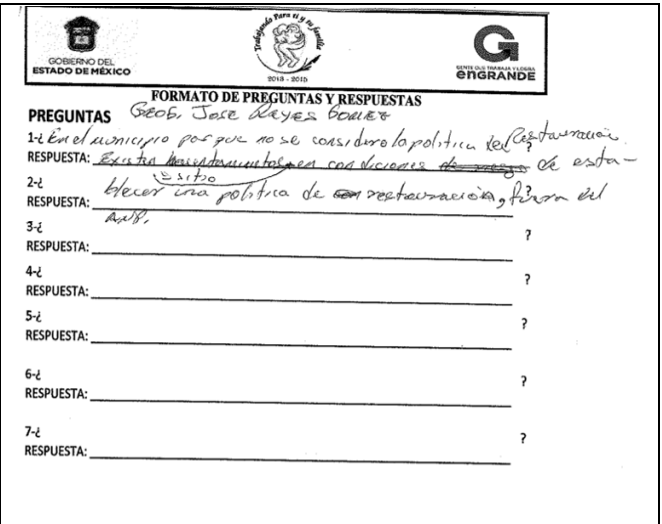 GOBIERNO DEL
ESTADO DE MÉXICO
Trabajando Para ti y tu familia
2013 - 2015
G
GENTE QUE TRABAJA Y LOGRA
enGRANDE
FORMATO DE PREGUNTAS Y RESPUESTAS
PREGUNTAS Geog. Jose Reyes Gomez
1-¿ En el municipio por que no se considero la politica de Restauración ?
RESPUESTA: Existen en condiciones de esta-
sitio
2-¿ blecer una politica de restauración, fuera del ?
RESPUESTA:
A.N.P.
3-¿ ?
RESPUESTA:
4-¿ ?
RESPUESTA:
5-¿ ?
RESPUESTA:
6-¿ ?
RESPUESTA:
7-¿ ?
RESPUESTA: